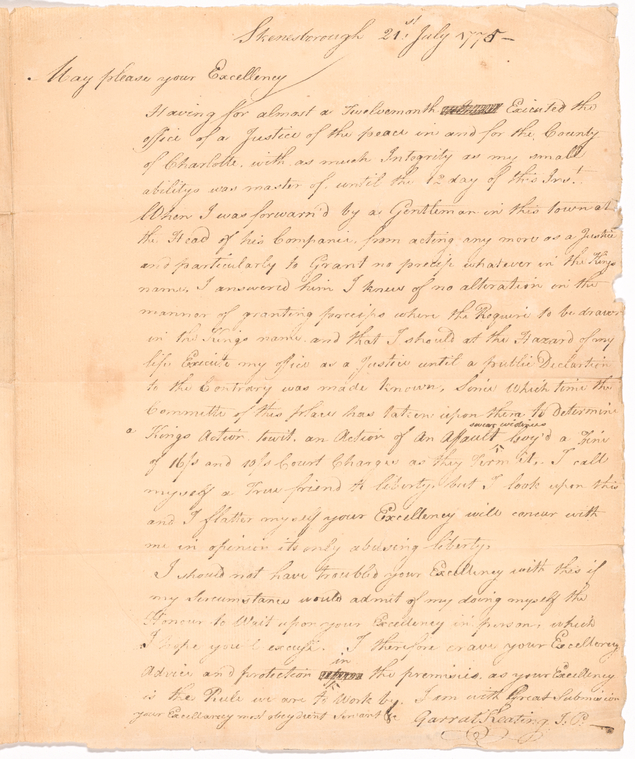 Skenesborough 21st July 1775 —
May please your Excellency
Having for almost a Twelvemonth Executed the
office of a Justice of the peace in and for the County
of Charlotte, with as much Integrity as my small
abilitys was master of, until the 12 day of this Inst.
When I was forwarn'd by a Gentleman in this town at
the Head of his Companie, from acting any more as a Justice
and particularly to Grant no precips whatever in the Kings
name, I answered him I knew of no alteration in the
manner of granting precips where the Require to be drawn
in the Kings name, and that I should at the Hazard of my
life Execute my office as a Justice until a public Declartion
to the Contrary was made known, Since which time the
Committe of this place has taken upon them to determin
a Kings Action towit, an Action of An Assault levy'd a Fine
of 16/s and 19/s Court Charges as they Term it, I call
myself a True friend to liberty, but I look upon this
and I flatter myself your Excellency will concur with
me in opinion its only abusing liberty,
I should not have troubled your Excellency with this if
my Sircumstance would admit of my doing myself the
Honour to Wait upon your Excellency in person, which
I hope you'l excuse. I therefore crave your Excellency
Advice and protection in the premises, as your Excellency
is the Rule we are to Work by, I am with Great Submission
your Excellency most obedient Servant &c Garrat Keating J. P.